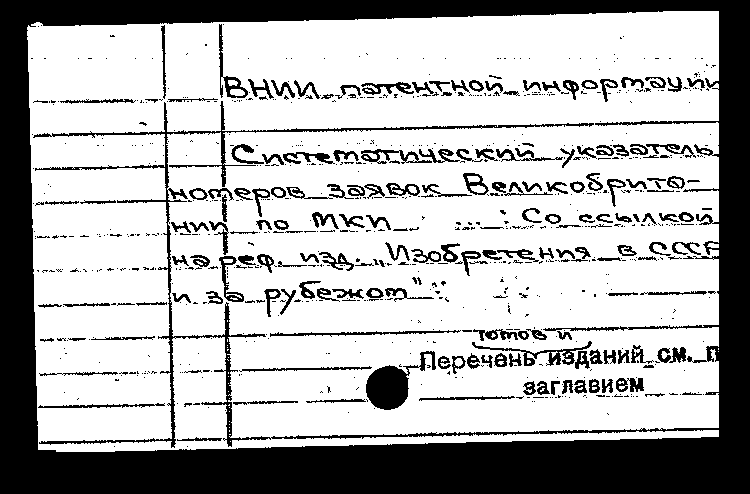 ВНИИ патентной информации
Систематический указатель
номеров заявок Великобрита-
нии по МКИ ... : Со ссылкой
на реф. изд. „Изобретения в СССР
и за рубежом":
томов и
Перечень изданий см. п
заглавием